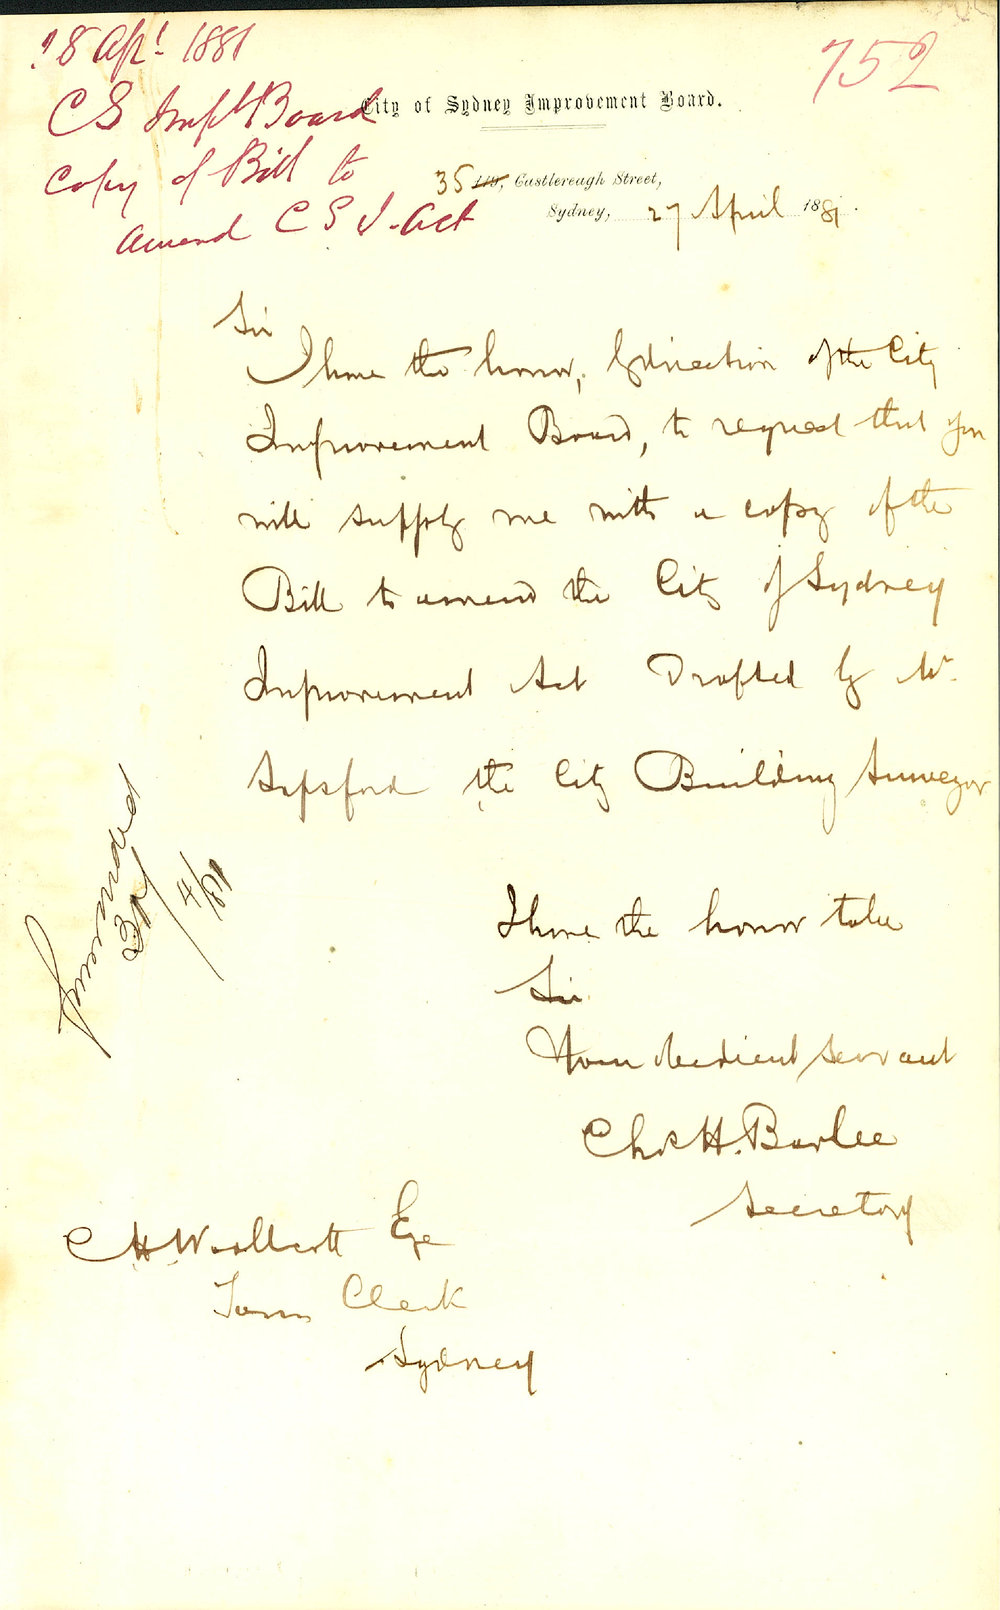 28 Apl 1881
752
C S Impt Board
Copy of Bill to
amend C S I. Act
City of Sydney Improvement Board.
35 119, Castlereagh Street,
Sydney, 27 April 1881.
Sir
I have the honor, by direction of the City
Improvement Board, to request that you
will supply me with a copy of the
Bill to amend the City of Sydney
Improvement Act Drafted by Mr.
Sapsford the City Building Surveyor
I have the honor to be
Sir
Your obedient servant
Chs H. Barlee
Secretary
C H Woollcott Esq
Town Clerk
Sydney
4/81